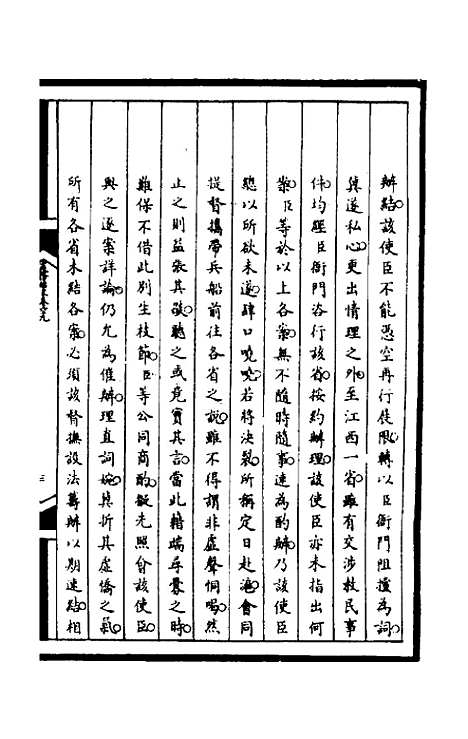 辦結該使臣不能憑空再行徒限轉以臣衙門阻擋為詞
冀遂私心更出情理之外至江西一省雖有交涉教民事
件均經臣衙門咨行該省按約辦理該使臣亦未指出何
案臣等於以上各案無不隨時隨事速為酌辦乃該使臣
總以所欲未遂肆口嘵嘵若將決裂所稱定日赴滬會同
提督攜帶兵船前往各省之說雖不得謂非虛聲恫喝然
止之則益張其欲聽之或竟實其言當此藉端尋釁之時
難保不借此別生枝節臣等公同商酌擬先照會該使臣
與之逐案詳論仍允為催辦理直詞婉冀折其虛憍之氣
所有各省未結各案必須該督撫設法籌辦以期速結相
三